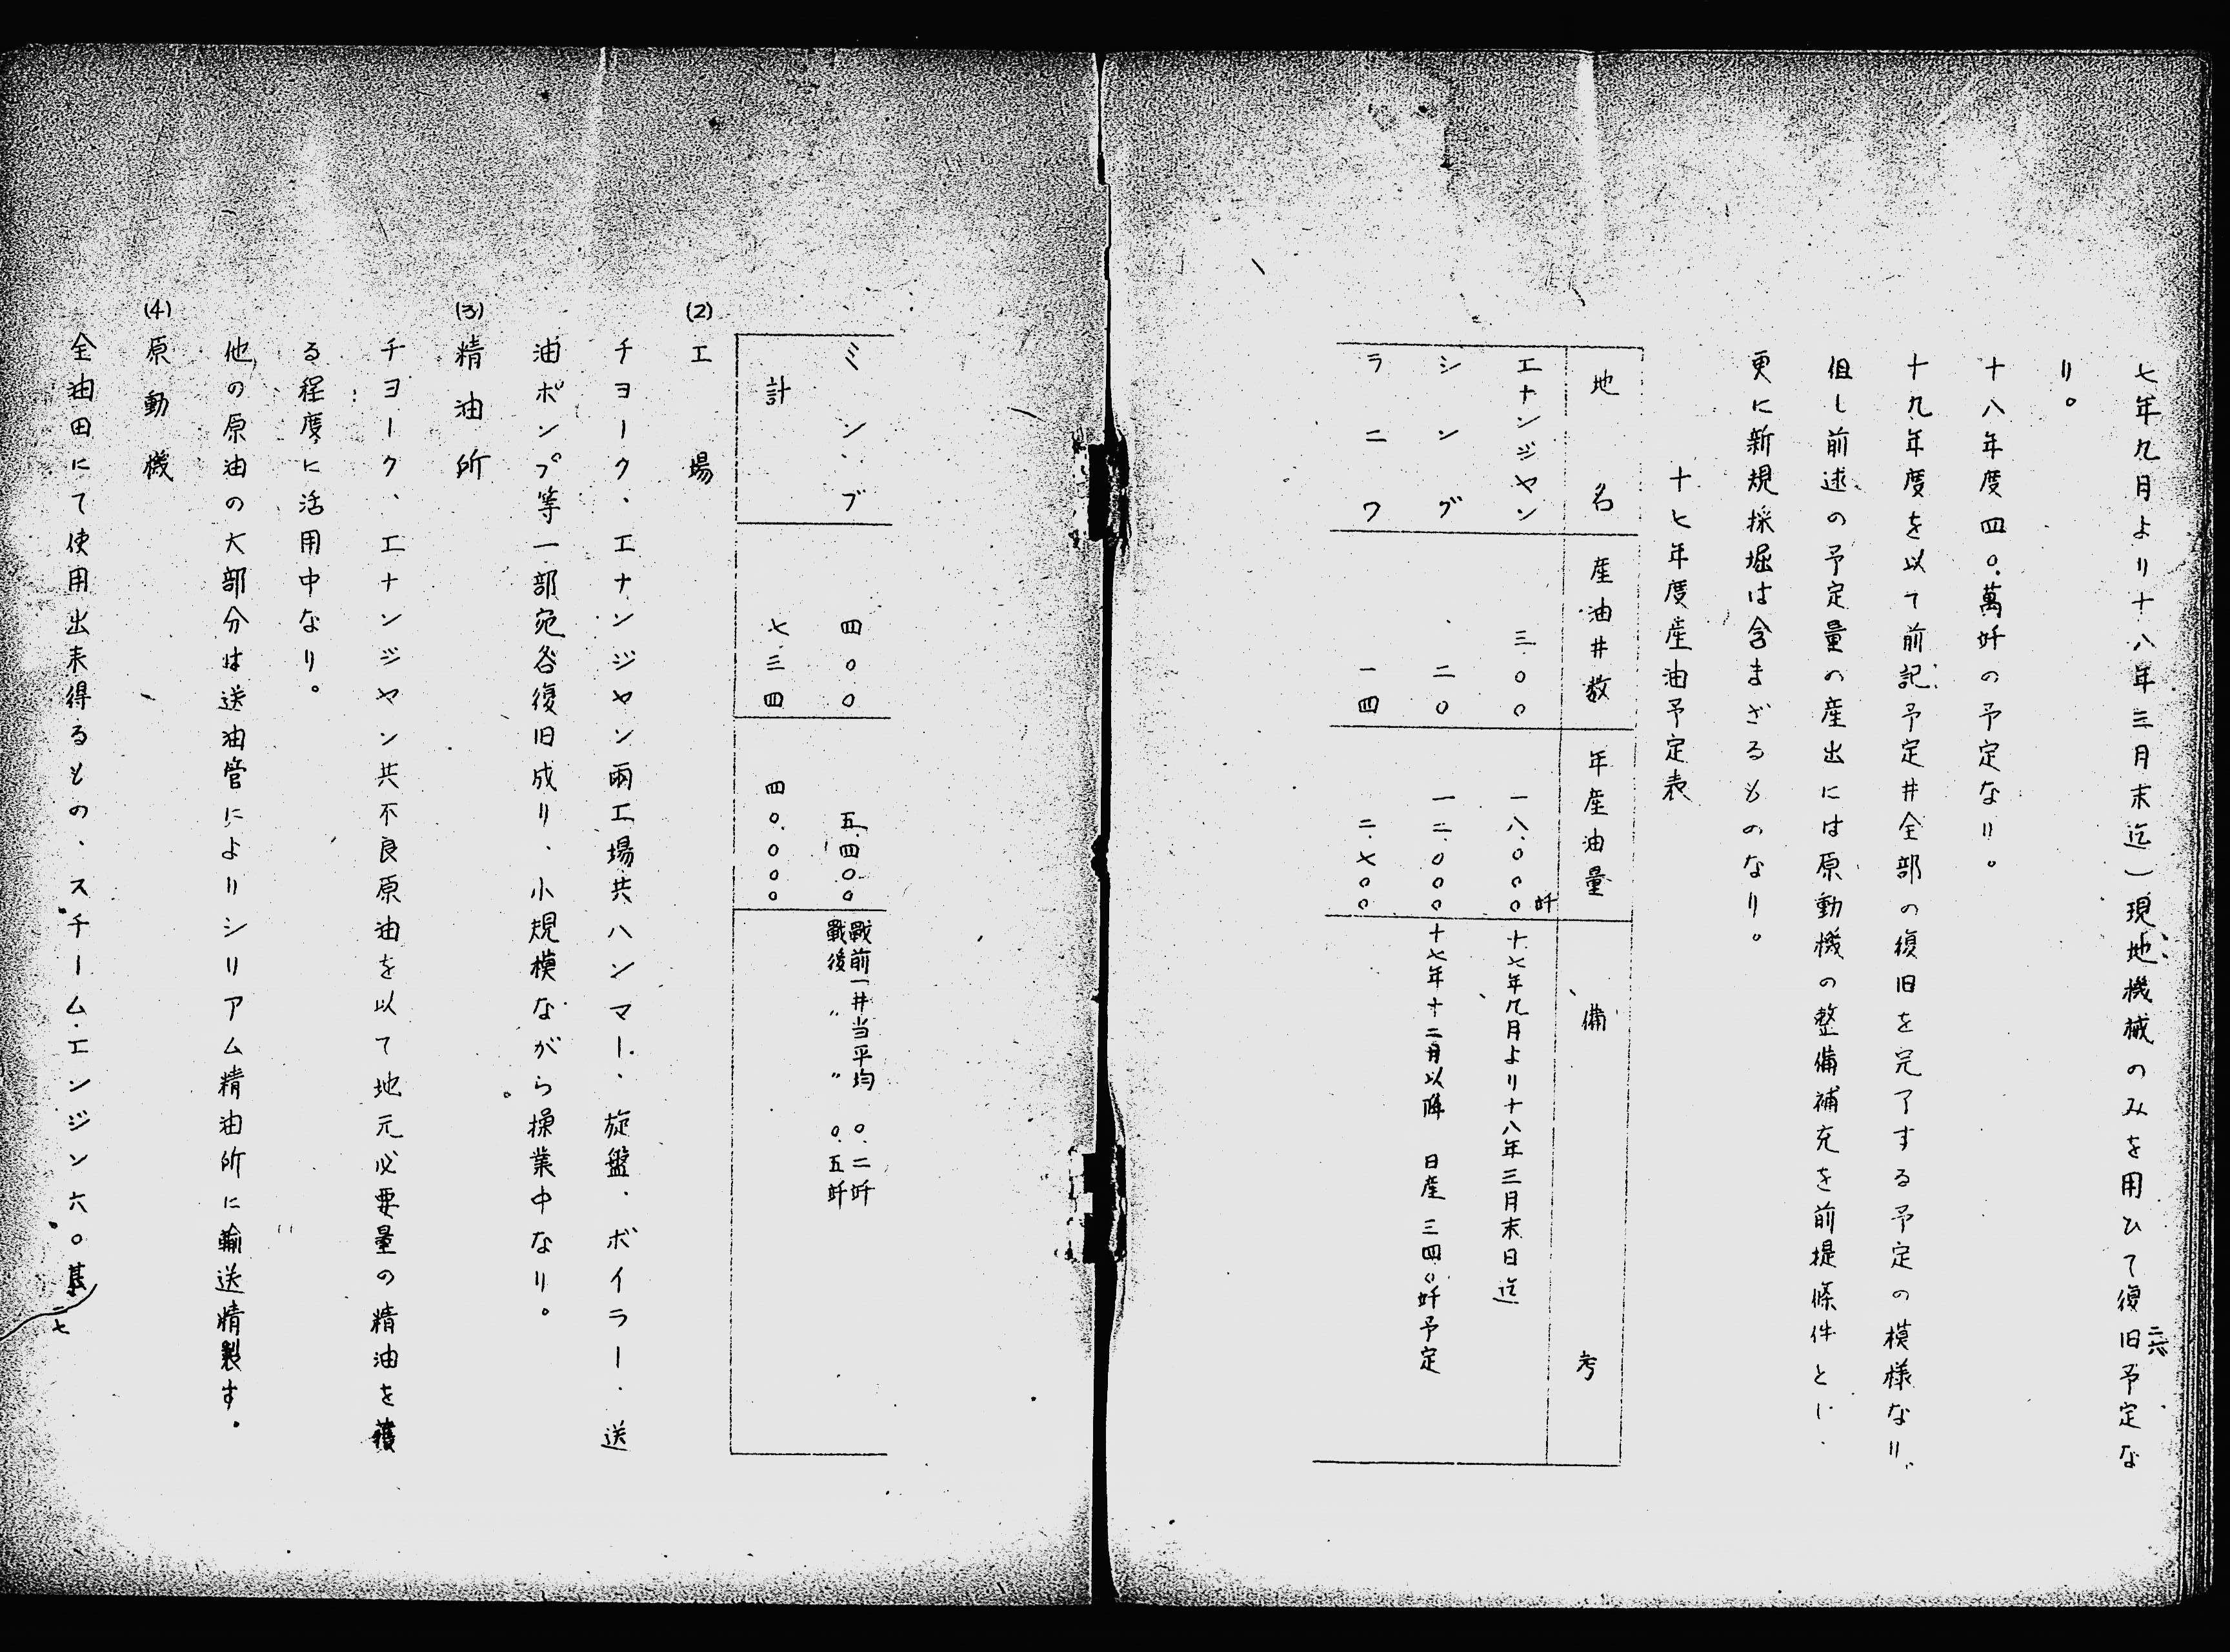 七年九月より十八年三月末迄)現地機械のみを用ひて復旧予定な
り。
十八年度四〇萬竏の予定なり。
十九年度を以て前記予定井全部の復旧を完了する予定の模様なり、
但し前述の予定量の産出には原動機の整備補充を前提條件とし、
更に新規採堀は含まざるものなり。
十七年度産油予定表
地名 産油井数 年産油量 備考
エナンジヤン 三〇〇 一八.〇〇〇竏 十七年九月より十八年三月末日迄
シング 二〇 一二.〇〇〇 十七年十二月以降 日産 三四〇竏予定
ラニワ 一四 二.七〇〇
二六
ミンブ 四〇〇 五.四〇〇 戰前一井当平均 〇.二竏
戰後 〃 〃 〇.五竏
計 七三四 四〇.〇〇〇
(2) 工場
チヨーク、エナンジヤン兩工場共ハンマー、旋盤、ボイラー、送
油ポンプ等一部宛各復旧成り、小規模ながら操業中なり。
(3) 精油所
チヨーク、エナンジヤン共不良原油を以て地元必要量の精油を獲
る程度に活用中なり。
他の原油の大部分は送油管によりシリアム精油所に輸送精製す。
(4) 原動機
全油田にて使用出来得るもの、スチーム.エンジン六〇基
二七